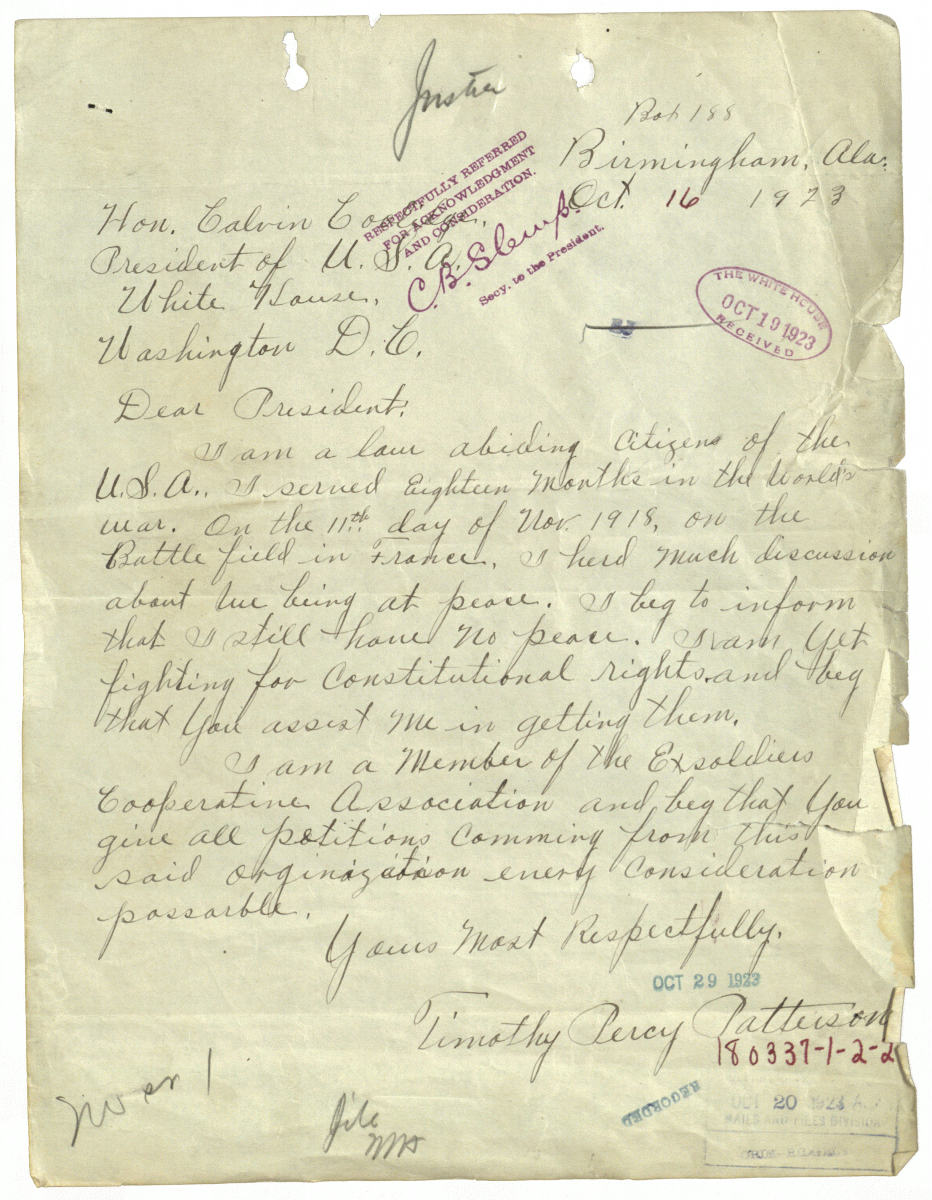 Justice
Box 188
Birmingham, Ala.
Oct. 16 1923
RESPECTFULLY REFERRED
FOR ACKNOWLEDGMENT
AND CONSIDERATION.
C.B. Slemp.
Secy. to the President.
Hon. Calvin Coolidge,
President of U.S.A.
White House,
Washington D.C.
THE WHITE HOUSE
OCT 19 1923
RECEIVED
Dear President:
I am a law abiding Citizens of the
U.S.A.. I served Eighteen Months in the World's
war. On the 11th day of Nov. 1918, on the
Battle field in France. I herd much discussion
about we being at peace. I beg to inform
that I still have no peace. I am Yet
fighting for Constitutional rights. and beg
that You assist Me in getting them.
I am a Member of the Exsoldiers
Cooperative Association and beg that You
give all petitions comming from this
said orginization every consideration
possarble.
Yours Most Respectfully.
OCT 29 1923
Timothy Percy Patterson
180337-1-2-2
RECORDED
File
OCT 20 1923 A.M.
MAILS AND FILES DIVISION